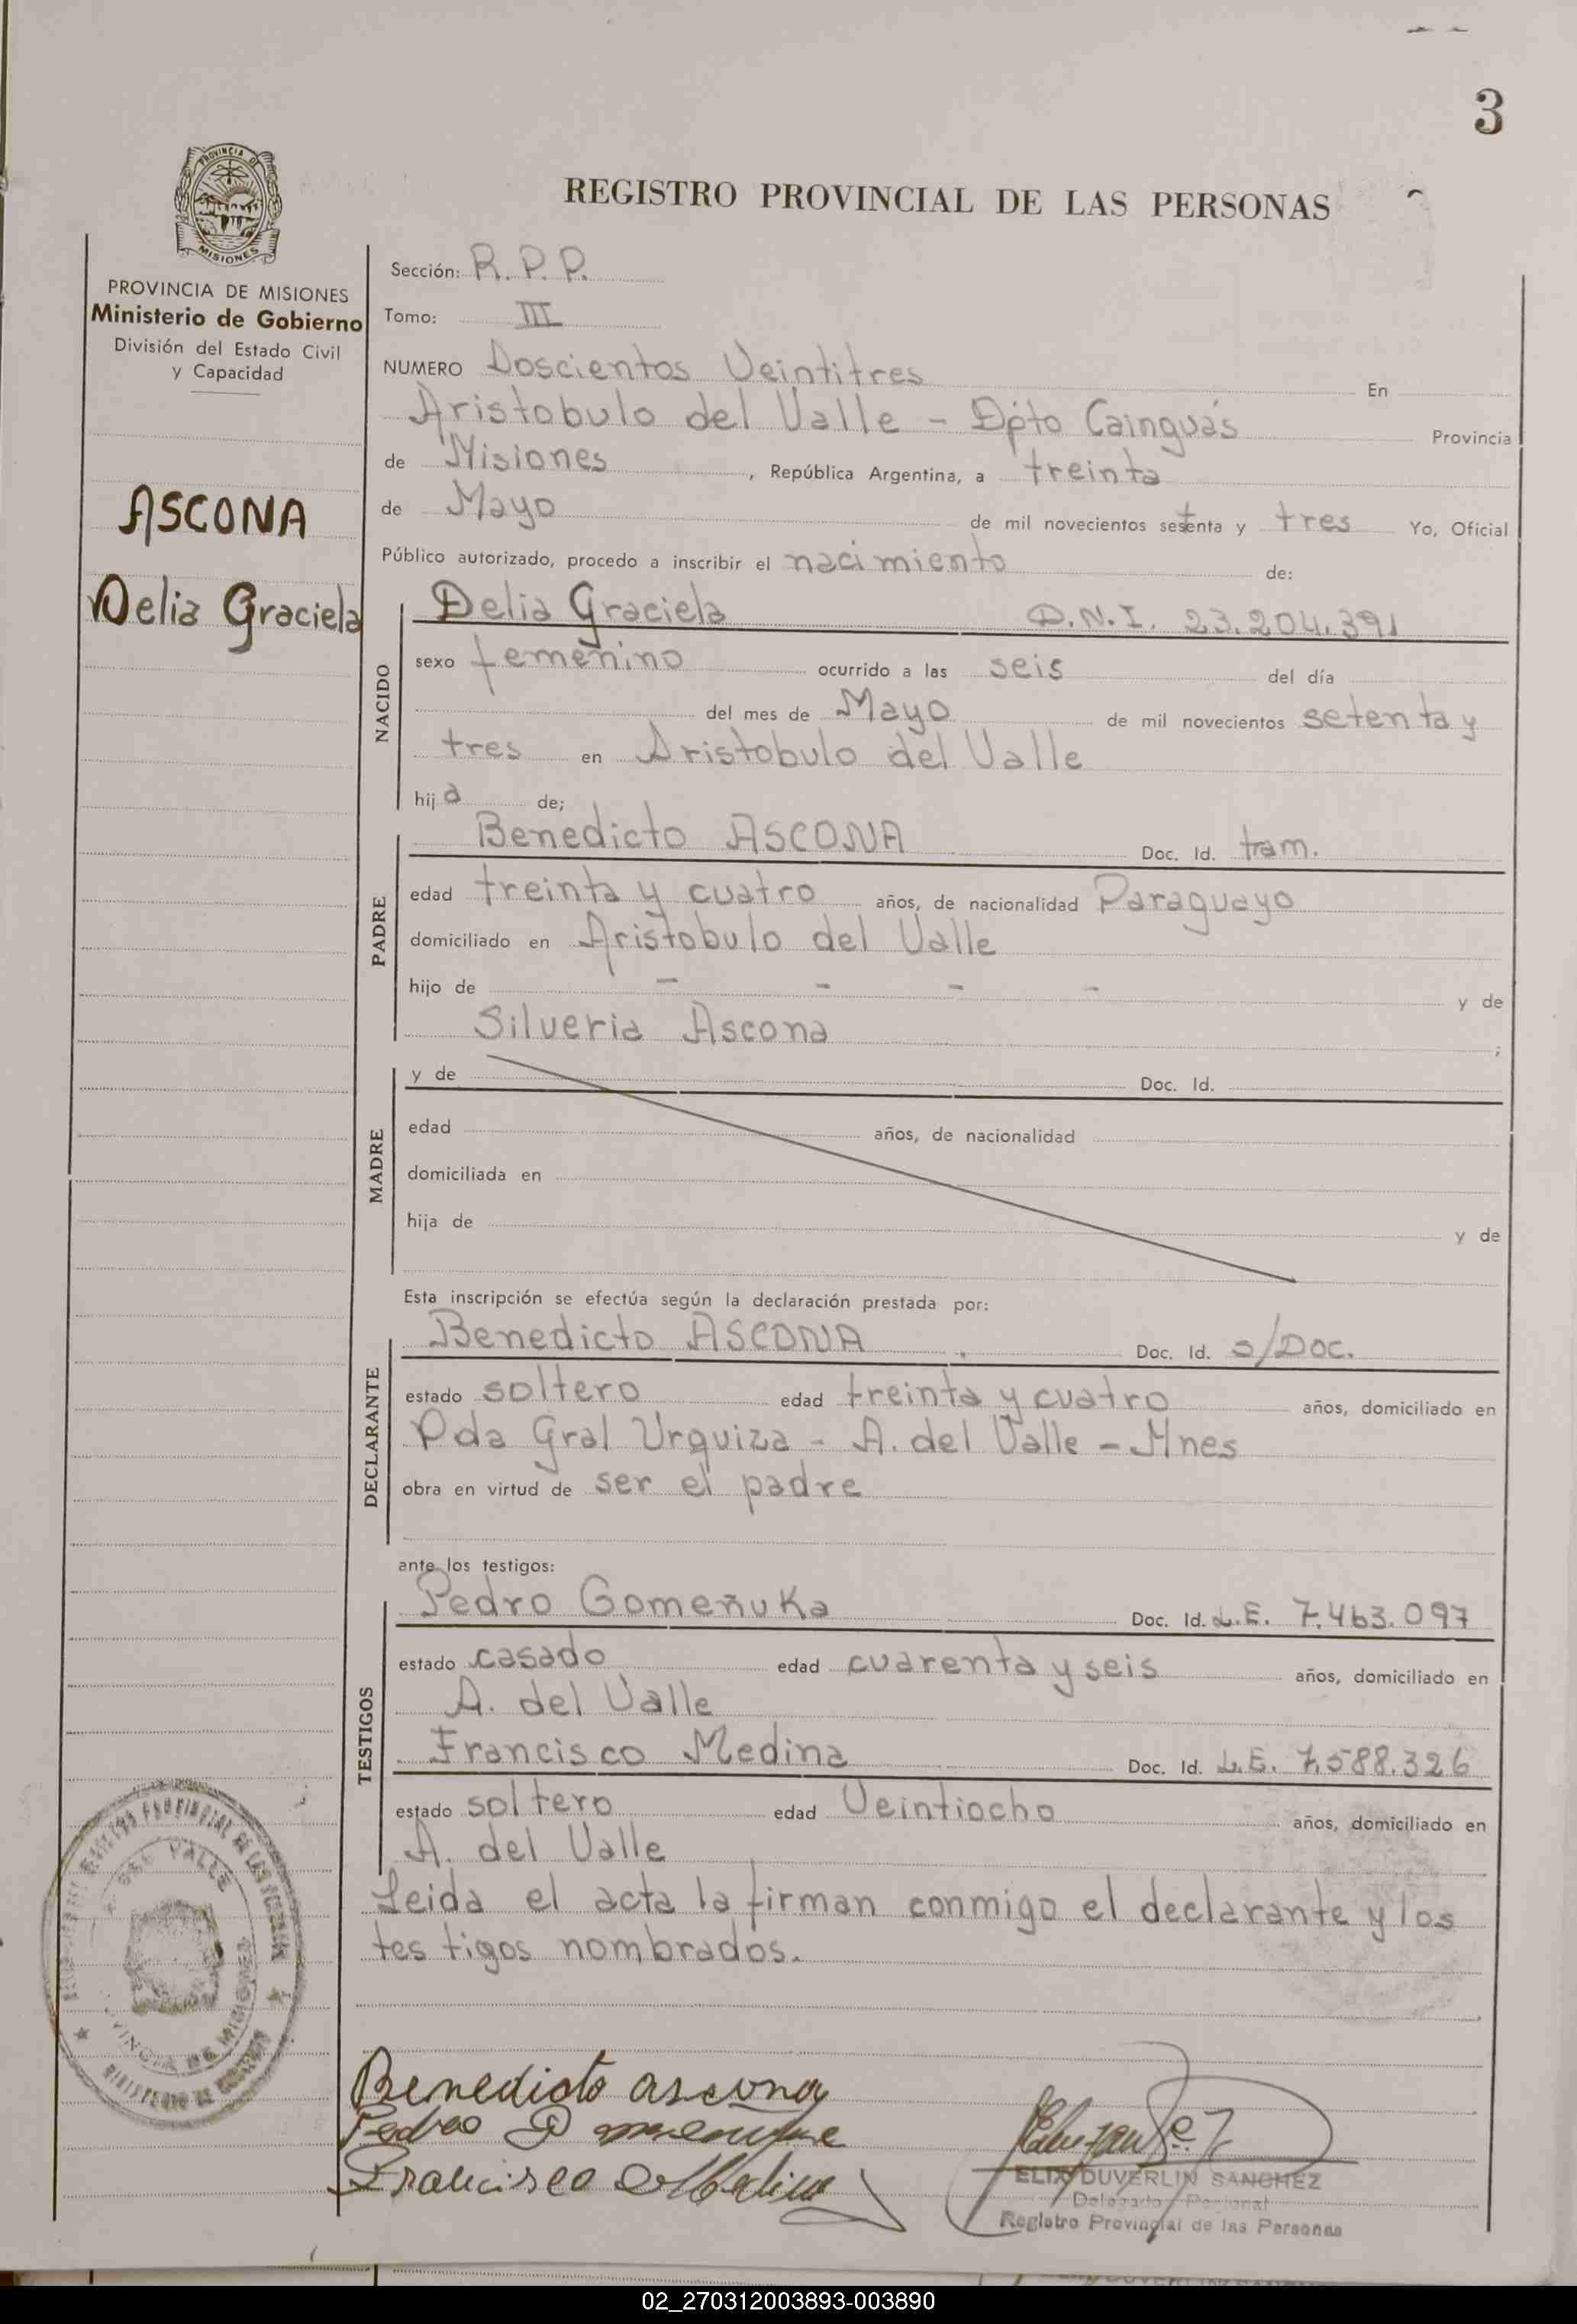 3
PROVINCIA DE
MISIONES
PROVINCIA DE MISIONES
Ministerio de Gobierno
División del Estado Civil
y Capacidad
ASCONA
Delia Graciela
REGISTRO PROVINCIAL DE LAS PERSONAS
Sección: R. P. P.
Tomo: III
NUMERO Doscientos Veintitres En
Aristobulo del Valle - Dpto Cainguás Provincia
de Misiones, República Argentina, a treinta
de Mayo de mil novecientos setenta y tres Yo, Oficial
Público autorizado, procedo a inscribir el nacimiento de:
NACIDO
Delia Graciela D.N.I. 23.204.391
sexo femenino ocurrido a las seis del día
del mes de Mayo de mil novecientos setenta y
tres en Aristobulo del Valle
hija de;
PADRE
Benedicto ASCONA Doc. Id. tram.
edad treinta y cuatro años, de nacionalidad Paraguayo
domiciliado en Aristobulo del Valle
hijo de - - - - y de
Silveria Ascona ;
MADRE
y de Doc. Id.
edad años, de nacionalidad
domiciliada en
hija de y de
Esta inscripción se efectúa según la declaración prestada por:
DECLARANTE
Benedicto ASCONA Doc. Id. s/Doc.
estado soltero edad treinta y cuatro años, domiciliado en
Pda Gral Urquiza - A. del Valle - Mnes
obra en virtud de ser el padre
ante los testigos:
TESTIGOS
Pedro Gomeñuka Doc. Id. L.E. 7.463.097
estado casado edad cuarenta y seis años, domiciliado en
A. del Valle
Francisco Medina Doc. Id. L.E. 7.588.326
estado soltero edad Veintiocho años, domiciliado en
A. del Valle
Leida el acta la firman conmigo el declarante y los
testigos nombrados.
DEL VALLE
Benedicto ascona
Pedro
Francisco
DUVERLIN SANCHEZ
Registro Provincial de las Personas
02_270312003893-003890